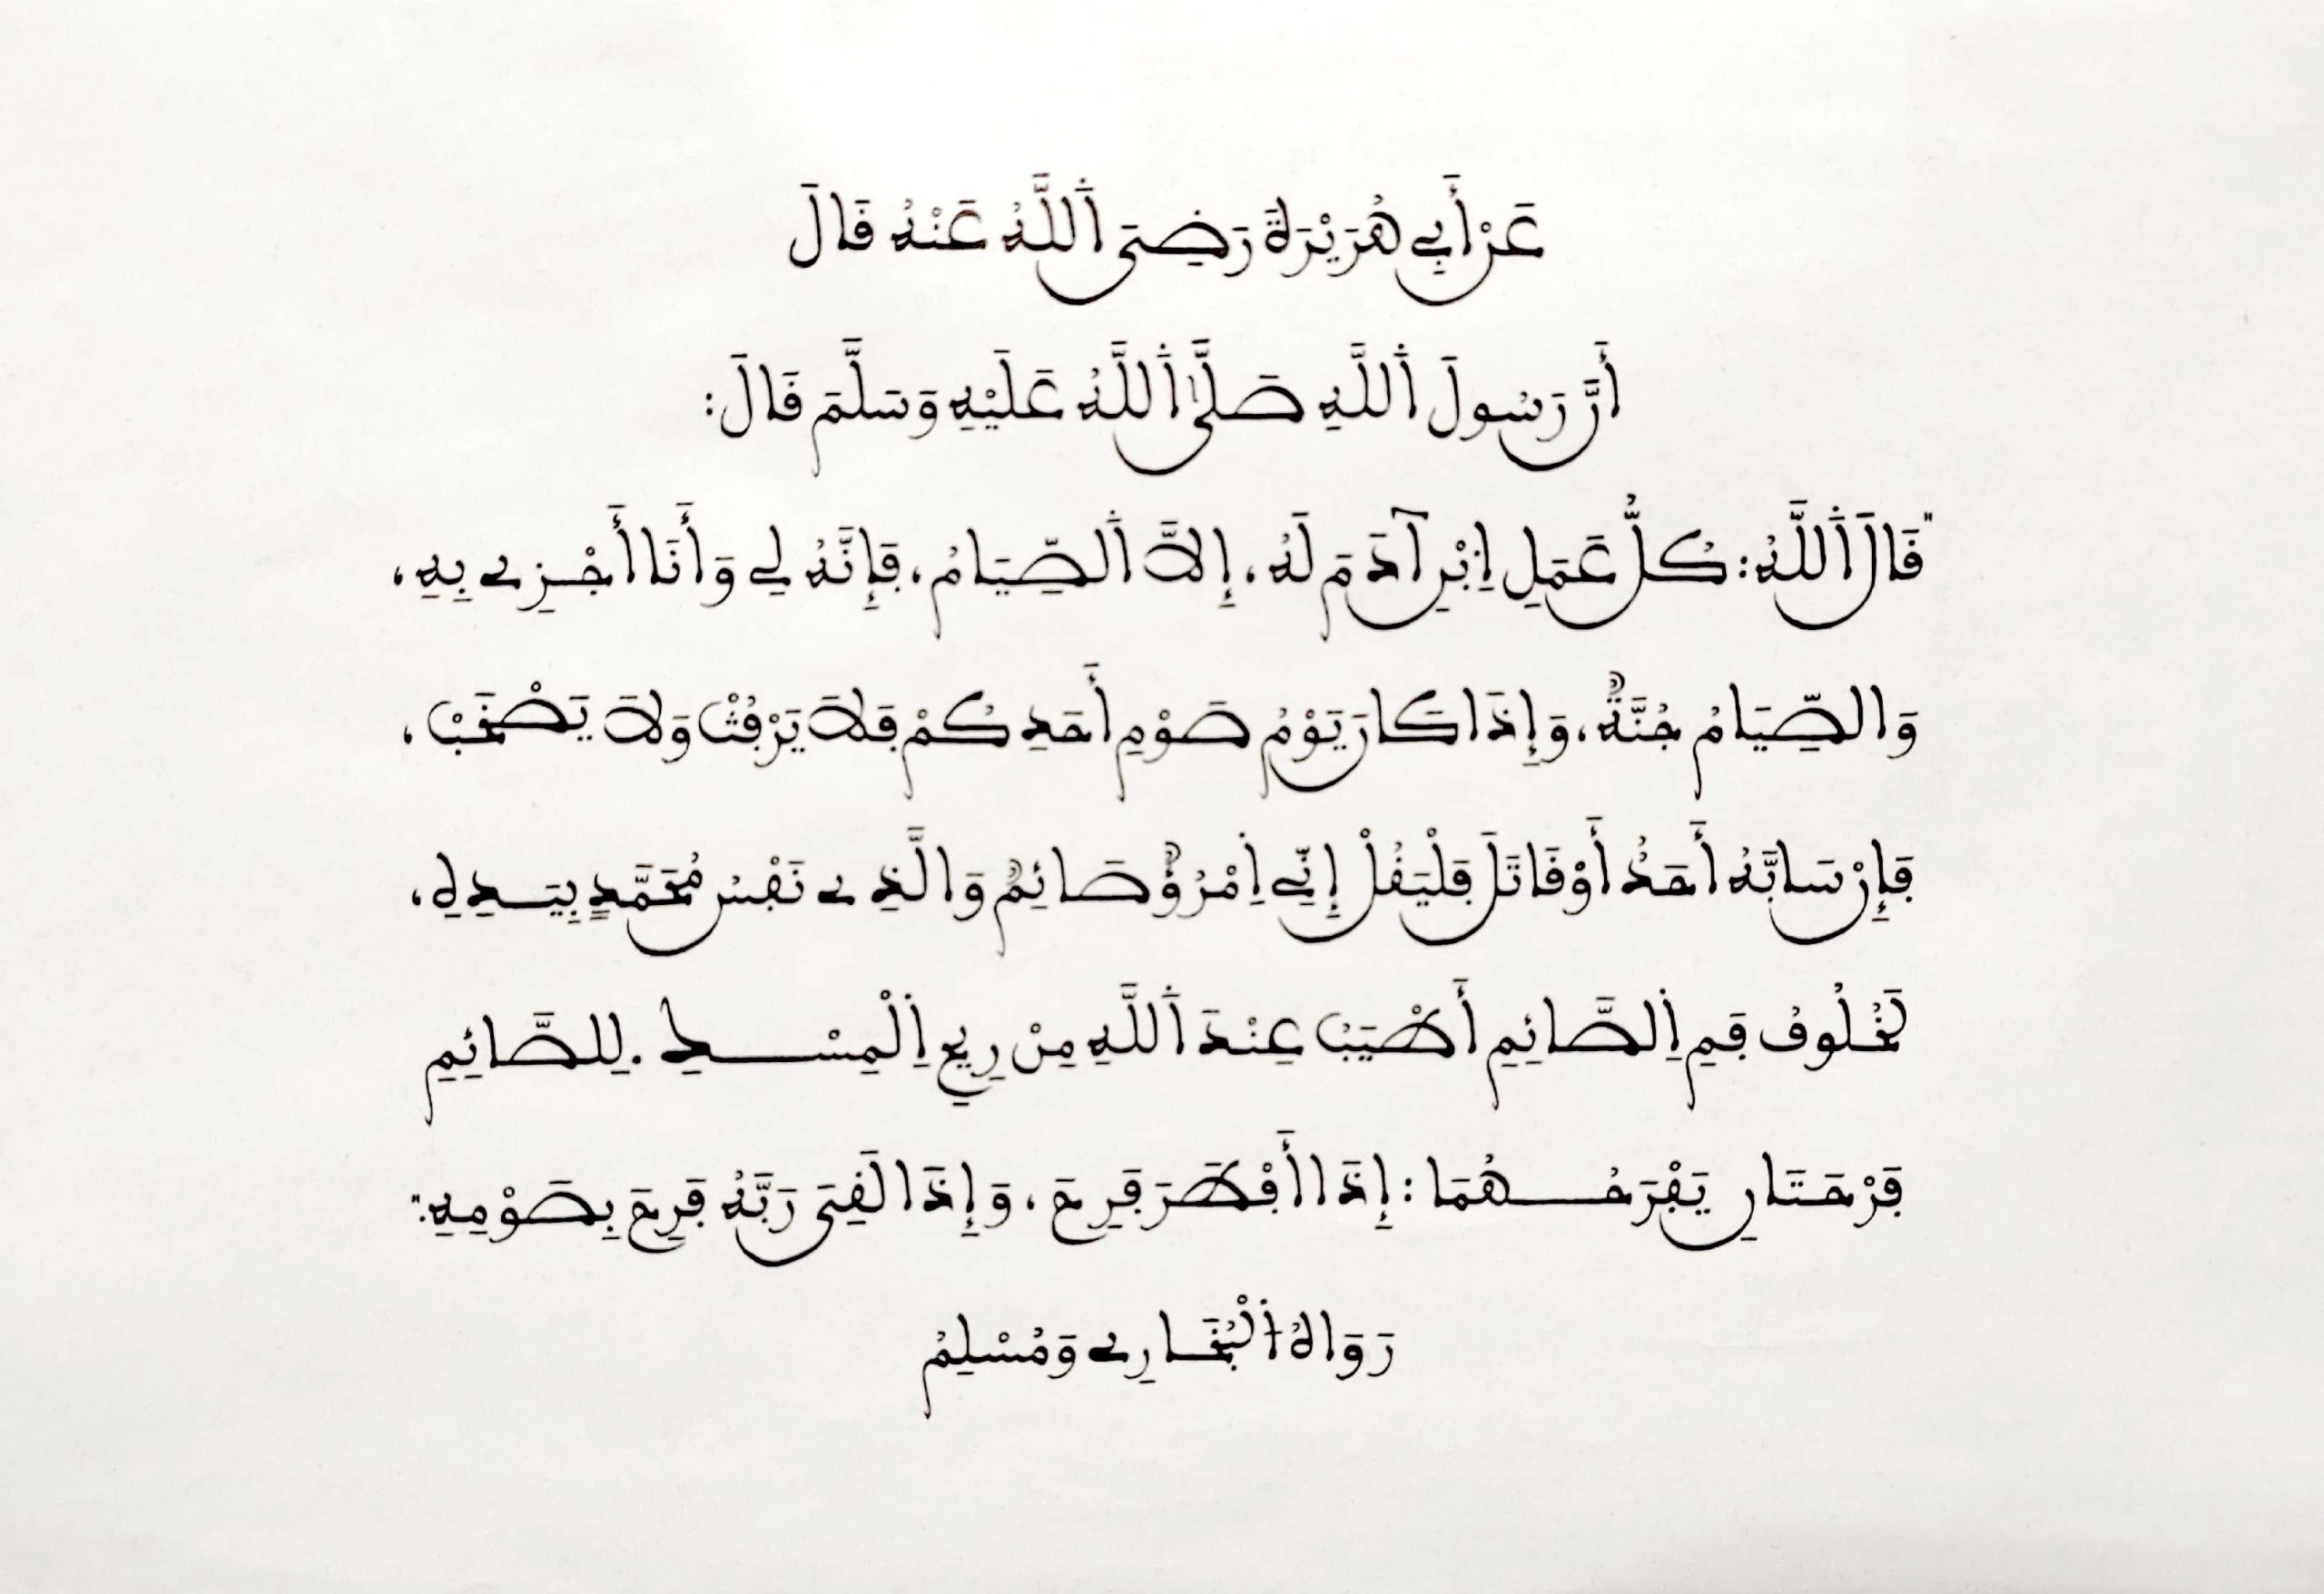 عَنْ أَبِي هُرَيْرَةَ رَضِيَ اَللَّهُ عَنْهُ قَالَ
أَنَّ رَسُولَ اَللَّهِ صَلَّى اَللَّهُ عَلَيْهِ وَسَلَّمَ قَالَ:
"قَالَ اَللَّهُ: كُلُّ عَمَلِ اِبْنِ آدَمَ لَهُ، إِلاَّ اَلصِّيَامُ، فَإِنَّهُ لِي وَأَنَا أَجْزِي بِهِ،
وَالصِّيَامُ جُنَّةٌ، وَإِذَا كَانَ يَوْمُ صَوْمِ أَحَدِكُمْ فَلاَ يَرْفُثْ وَلاَ يَصْخَبْ،
فَإِنْ سَابَّهُ أَحَدُ أَوْ قَاتَلَ فَلْيَقُلْ إِنِّي اِمْرُؤٌ صَائِمٌ وَالَّذِي نَفْسُ مُحَمَّدٍ بِيَدِهِ،
لَخُلُوفُ فَمِ اِلصَّائِمِ أَطْيَبُ عِنْدَ اَللَّهِ مِنْ رِيحِ اِلْمِسْكِ. لِلصَّائِمِ
فَرْحَتَانِ يَفْرَحُهُمَا: إِذَا أَفْطَرَ فَرِحَ، وَإِذَا لَقِيَ رَبَّهُ فَرِحَ بِصَوْمِهِ."
رَوَاهُ اُلْبُخَارِي وَمُسْلِمُ